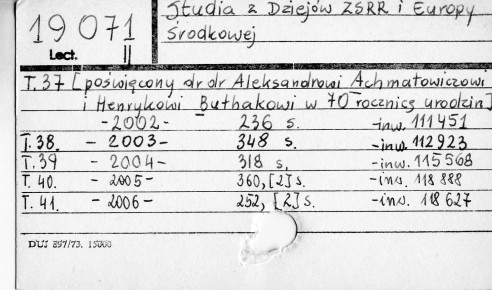 19071
Lect. II
Studia z Dziejów ZSRR i Europy
Środkowej
T.37 [poświęcony dr dr Aleksandrowi Achmatowiczowi
i Henrykowi Bułhakowi w 70 rocznicę urodzin]
-2002- 236 s. -inw. 111451
T.38. - 2003- 348 s. -inw. 112923
T.39 - 2004- 318 s. -inw. 115568
T. 40. - 2005- 360,[2]s. -inw. 118888
T. 41. - 2006- 252, [2]s. -inw. 118627
DUJ 897/73. 15000